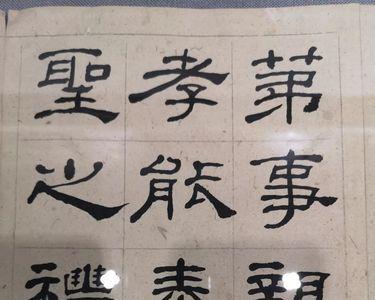 苐事親
孝能
聖之禮